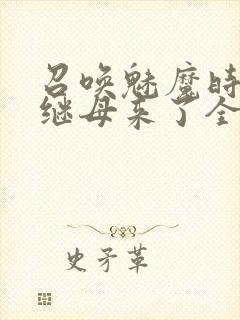 召唤魅魔时
继母来了全
史矛革